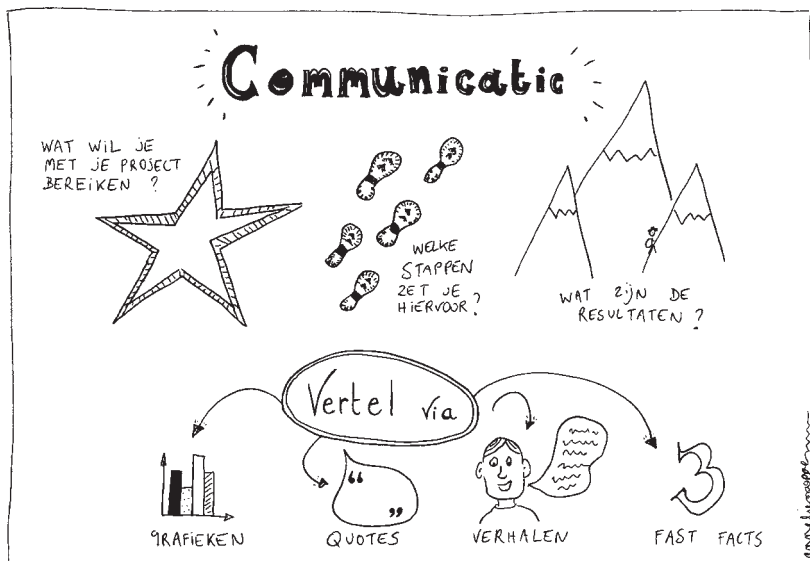 Communicatie
WAT WIL JE
MET JE PROJECT
BEREIKEN ?
WELKE
STAPPEN
ZET JE
HIERVOOR ?
WAT ZIJN DE
RESULTATEN ?
Vertel via
“
”
3
GRAFIEKEN
QUOTES
VERHALEN
FAST FACTS